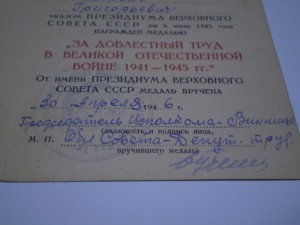 Григорьевич
УКАЗОМ ПРЕЗИДИУМА ВЕРХОВНОГО
СОВЕТА СССР от 6 июня 1945 года
НАГРАЖДЕН МЕДАЛЬЮ
„ЗА ДОБЛЕСТНЫЙ ТРУД
В ВЕЛИКОЙ ОТЕЧЕСТВЕННОЙ
ВОЙНЕ 1941—1945 гг.“
От имени ПРЕЗИДИУМА ВЕРХОВНОГО
СОВЕТА СССР МЕДАЛЬ ВРУЧЕНА
„30“ Апреля 1946 г.
Председатель Исполкома-Винниц
(должность и подпись лица,
М. П. Обл Совета-Депут. труд.
вручившего медаль)